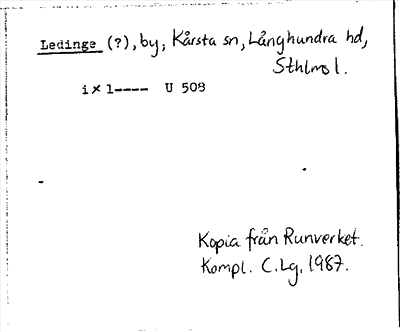 Ledinge (?), by, Kårsta sn, Långhundra hd,
Sthlms l.
i × l---- U 508
Kopia från Runverket.
Kompl. C.Lg, 1987.